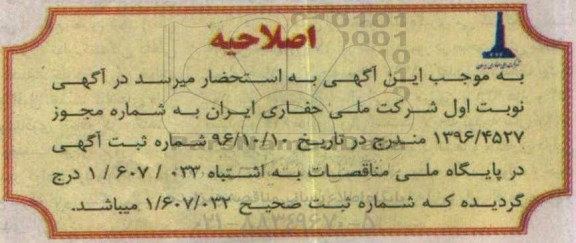 اصلاحیه
شرکت ملی حفاری ایران
به موجب این آگهی به استحضار میرسد در آگهی
نوبت اول شرکت ملی حفاری ایران به شماره مجوز
۱۳۹۶/۴۵۲۷ مندرج در تاریخ ۹۶/۱۰/۱۰ شماره ثبت آگهی
در پایگاه ملی مناقصات به اشتباه ۰۳۳ / ۶۰۷ / ۱ درج
گردیده که شماره ثبت صحیح ۱/۶۰۷/۰۳۲ میباشد.
۰۲۱-۸۸۳۴۹۶۷۰-۵